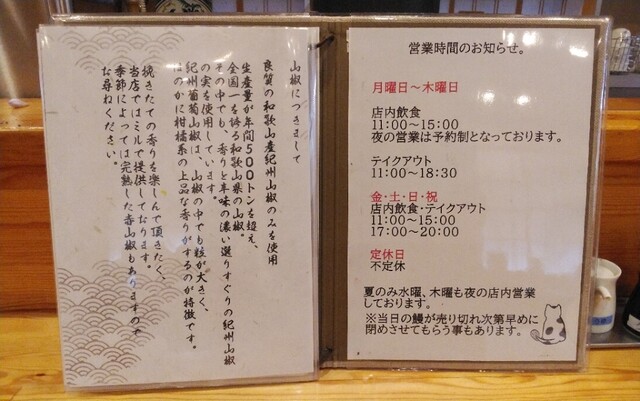 山椒につきまして
良質の和歌山産紀州山椒のみを使用
生産量が年間500トンを超え、
全国一を誇る和歌山県の山椒。
その中でも、香りと辛味の濃い選りすぐりの紀州山椒
の実を使用しています。
紀州葡萄山椒は、山椒の中でも粒が大きく、
ほのかに柑橘系の上品な香りがするのが特徴です。
挽きたての香りを楽しんで頂きたく、
当店ではミルで提供しております。
季節によっては完熟した赤山椒もありますので
お尋ねください。
営業時間のお知らせ。
月曜日〜木曜日
店内飲食
11:00〜15:00
夜の営業は予約制となっております。
テイクアウト
11:00〜18:30
金・土・日・祝
店内飲食・テイクアウト
11:00〜15:00
17:00〜20:00
定休日
不定休
夏のみ水曜、木曜も夜の店内営業
しております。
※当日の鰻が売り切れ次第早めに
閉めさせてもらう事もあります。